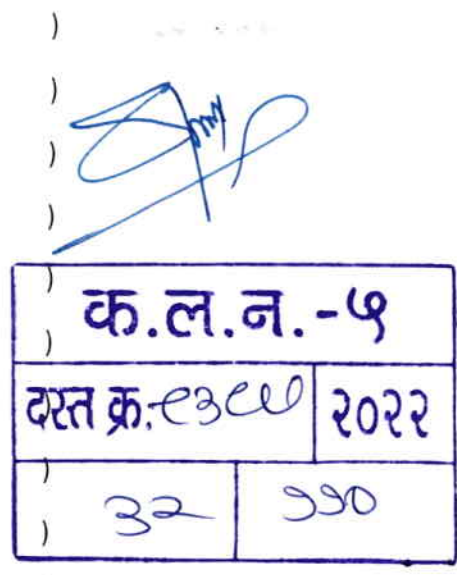 )
)
)
)
)
क.ल.न.-५
)
दस्त क्र. ९३९७ २०२२
)
३२ ११०
)